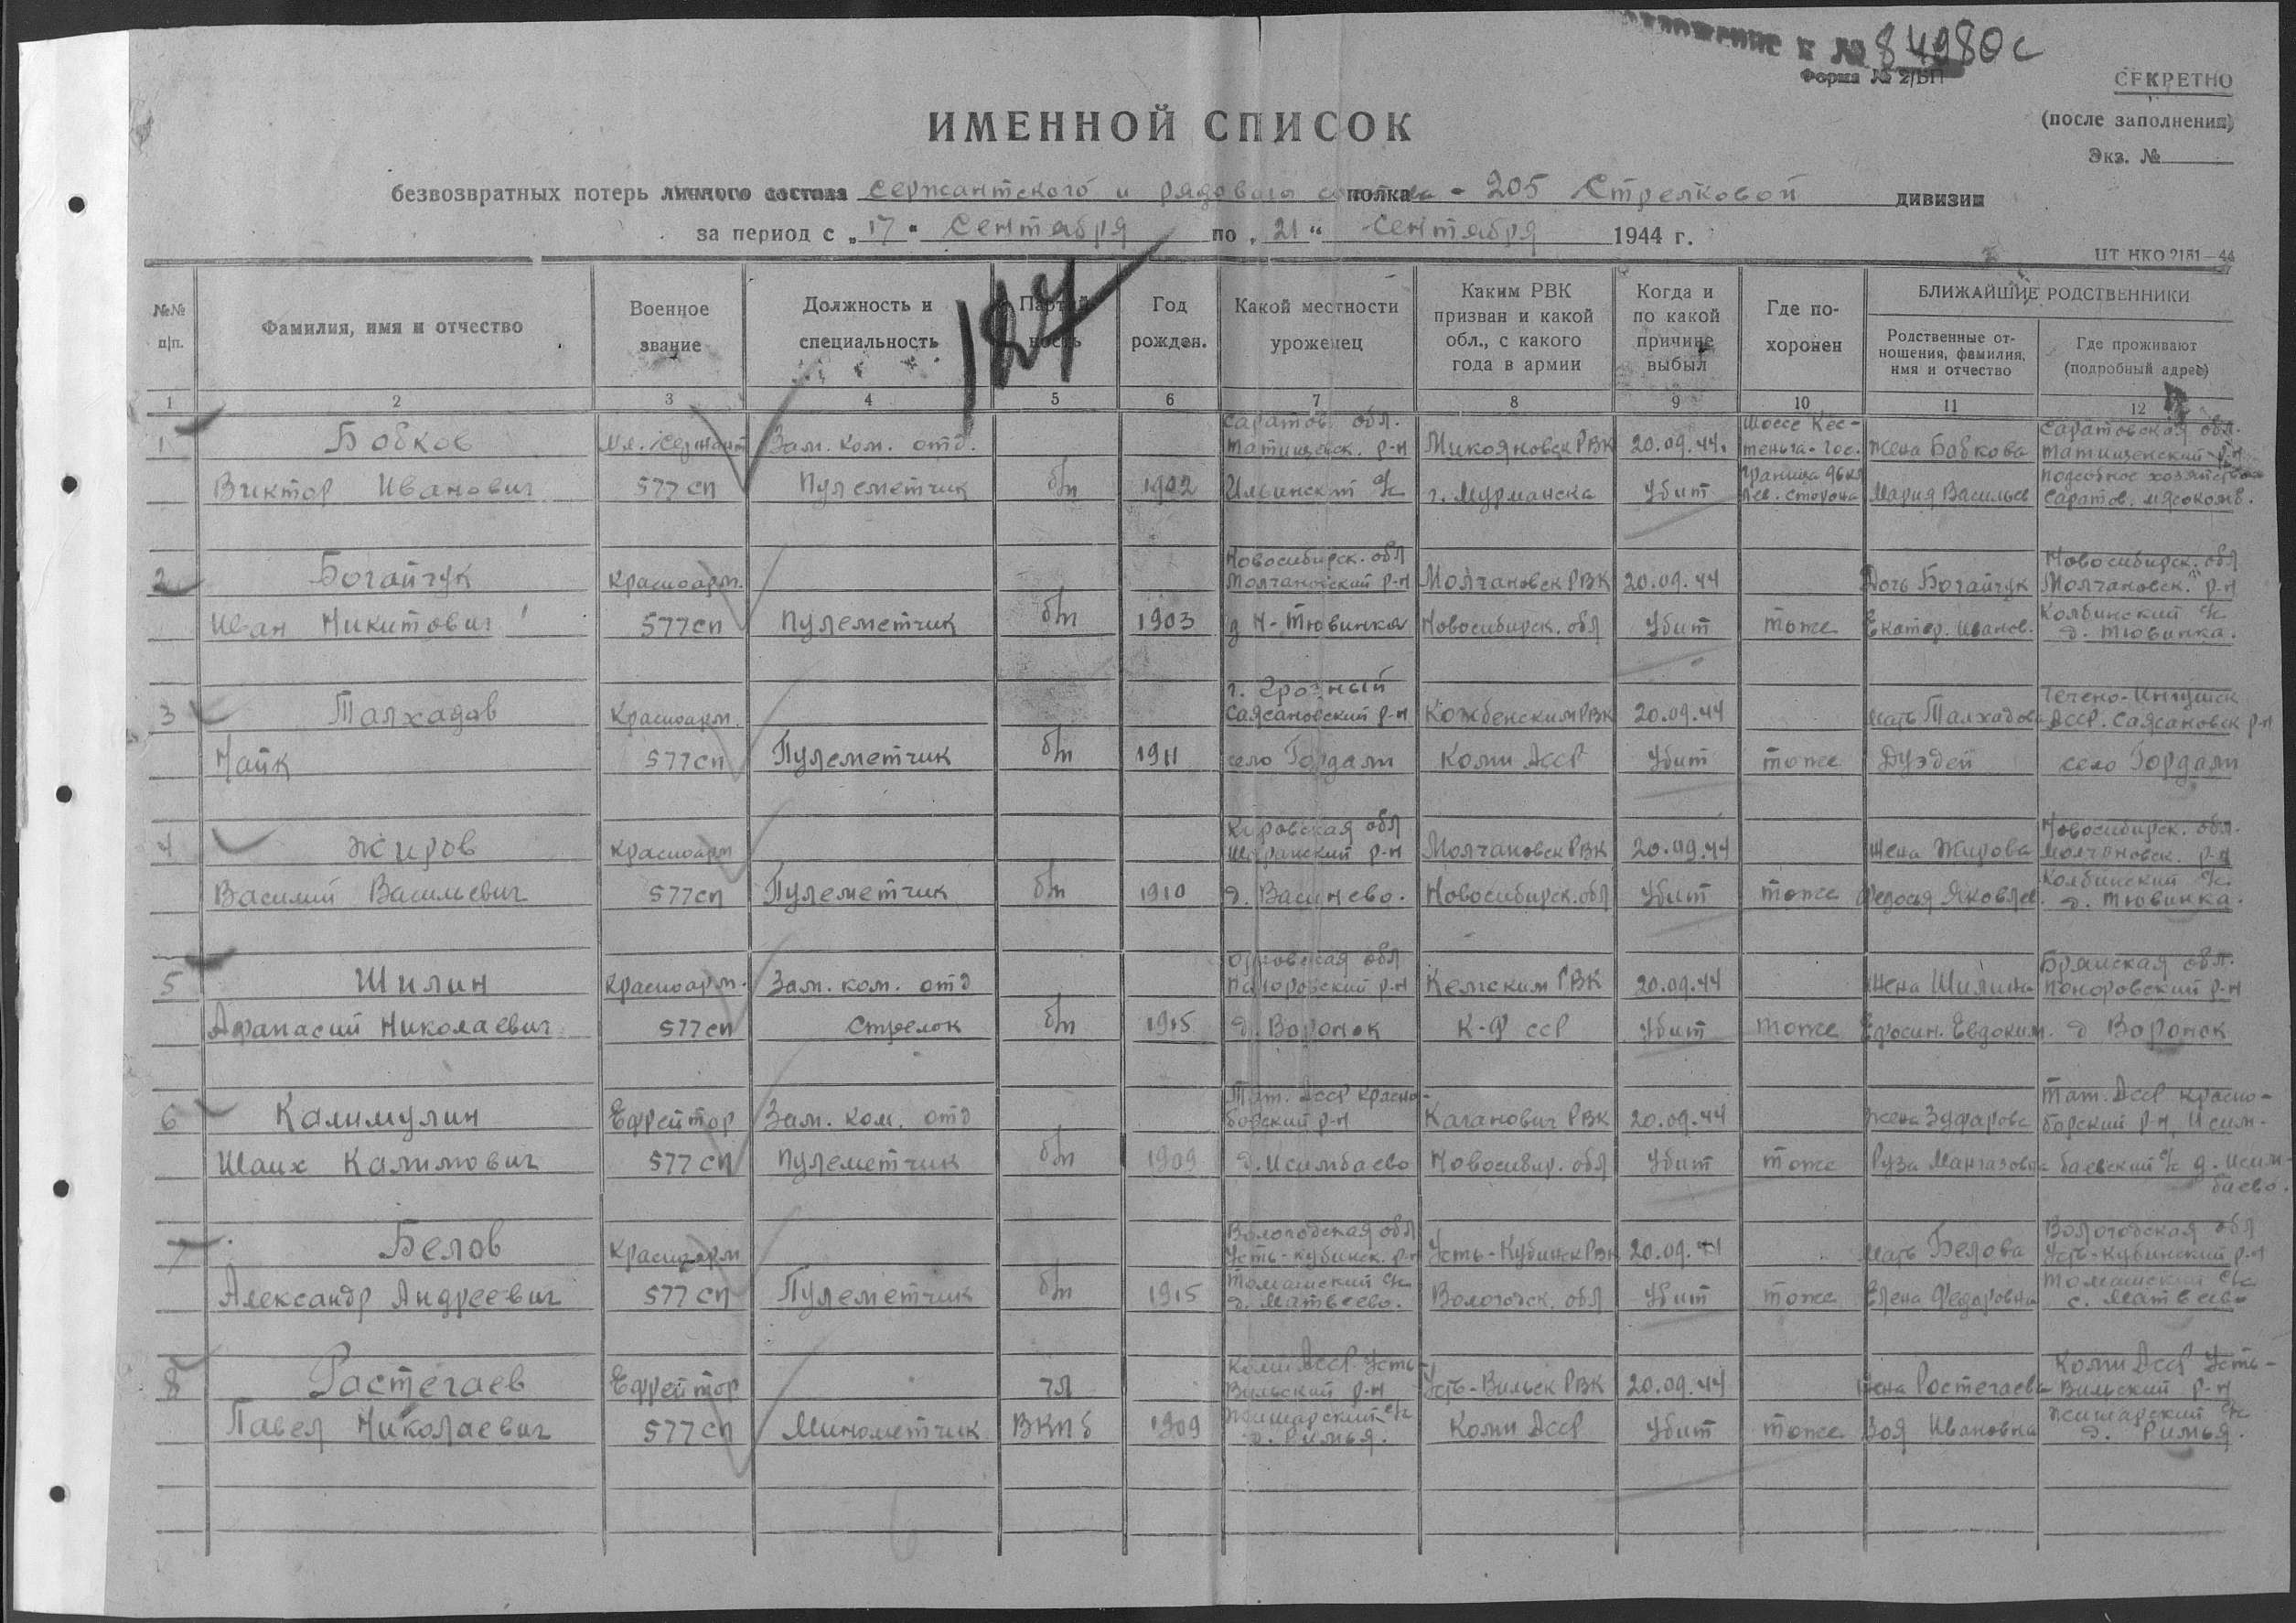 Приложение к № 84980с
Форма № 2/БП
СЕКРЕТНО
(после заполнения)
Экз. №
ИМЕННОЙ СПИСОК
безвозвратных потерь личного состава сержантского и рядового состава полка - 205 Стрелковой дивизии
за период с „17“ Сентября по „21“ Сентября 1944 г.
ЦТ НКО 2181—44
184
№№ п/п.
Фамилия, имя и отчество
Военное звание
Должность и специальность
Партийность
Год рожден.
Какой местности уроженец
Каким РВК призван и какой обл., с какого года в армии
Когда и по какой причине выбыл
Где по-хоронен
БЛИЖАЙШИЕ РОДСТВЕННИКИ
Родственные от-ношения, фамилия, имя и отчество
Где проживают (подробный адрес)
1 2 3 4 5 6 7 8 9 10 11 12
1 Бобков Мл. сержант Зам. ком. отд. Саратов. обл. Татищевск. р-н Микояновск РВК 20.09.44. Шоссе Кес-теньга-Гос. Жена Бобкова Саратовская обл. Татищенский р-н
Виктор Иванович 577 сп Пулеметчик б/п 1902 Ильинский с/с г. Мурманска Убит граница лев. сторона Мария Васильев Подсобное хозяйство Саратов. мясокомб.
2 Богайчук Красноарм. Новосибирск. обл Молчановский р-н Молчановск РВК 20.09.44 Дочь Богайчук Новосибирск. обл Молчановск. р-н
Иван Никитович 577 сп Пулеметчик б/п 1903 д Н-Тювинка Новосибирск. обл Убит тоже Екатер. Иванов. Колбинский с/с д. Тювинка.
3 Талхадов Красноарм. г. Грозный Саясановский р-н Кожвенским РВК 20.09.44 Мать Талхадова Чечено-Ингушск АССР. Саясановск р-н
Наик 577 сп Пулеметчик б/п 1911 село Гордали Коми АССР Убит тоже Дуэдей село Гордали
4 Жиров Красноарм Кировская обл Шаранский р-н Молчановск РВК 20.09.44 Жена Жирова Новосибирск. обл. Молчановск. р-н
Василий Васильевич 577 сп Пулеметчик б/п 1910 д. Васинево. Новосибирск. обл Убит тоже Федосья Яковлев. Колбинский с/с д. Тювинка.
5 Шилин Красноарм. Зам. ком. отд Орловская обл Поноровский р-н Кемским РВК 20.09.44 Жена Шилина Брянская обл. Поноровский р-н
Афанасий Николаевич 577 сп Стрелок б/п 1915 д. Воронок К-Ф ССР Убит тоже Ефросин. Евдоким. д Воронок
6 Калимулин Ефрейтор Зам. ком. отд Тат. АССР Красно-борский р-н Каганович РВК 20.09.44 Жена Зуфарова Тат. АССР Красно-борский р-н, Исим-
Шаих Калимович 577 сп Пулеметчик б/п 1909 д. Исимбаево Новосибир. обл Убит тоже Руза Мангазовна баевский с/с д. Исим-баево.
7 Белов Красноарм Вологодская обл Усть-Кубинск. р-н Усть-Кубинск РВК 20.09.44 Мать Белова Вологодская обл Усть-Кубинский р-н
Александр Андреевич 577 сп Пулеметчик б/п 1915 Томашский с/с д. Матвеево. Вологодск. обл Убит тоже Елена Федоровна Томашский с/с с. Матвеево
8 Растегаев Ефрейтор чл Коми АССР Усть-Вильский р-н Усть-Вильск РВК 20.09.44 Жена Ростегаева Коми АССР Усть-Вильский р-н
Павел Николаевич 577 сп Минометчик ВКПб 1909 Жишарский с/с д. Римья. Коми АССР Убит тоже Зоя Ивановна Жишарский с/с д. Римья.